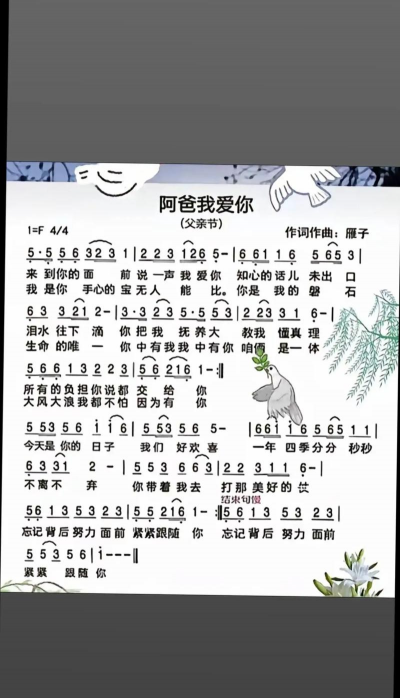 阿爸我爱你
(父亲节)
1=F 4/4 作词作曲：雁子
5·5 5 6 3 2 3 1 | 2 2 3 1 2 6 5 - | 6 6 1 1 6 | 5 6 5 3 |
来 到你的 面 前 说 一声 我 爱 你 知心的 话儿 未出 口
我 是 你 手心的 宝 无人 能 比。你是 我的 磐 石
6 3 3 2 1 2 - | 3·3 2 3 5·5 3 5 | 2 2 3 3 1 6 - |
泪水 往下 滴 你 把 我 抚 养大 教我 懂真 理
生命 的唯 一 你 中 有我 我 中 有你 咱俩 是 一体
5 6 6 1 3 2 2 3 | 5 5 6 2 1 6 1 - :||
所有的负担你说都 交 给 你
大风大浪我都不怕 因为有 你
5 5 3 5 6 1 1 6 | 5 5 3 5 6 5 - | 6 6 1 1 6 5 6 5 1 1 |
今天是 你的 日子 我们 好欢 喜 一年 四季分分 秒秒
6 3 3 1 2 - | 5 5 3 6 6 3 | 2 2 3 1 1 6 - |
不离不 弃 你带着我去 打那美好的 仗
结束句慢
5 6 1 3 5 5 3 2 3 | 5 5 2 2 1 6 1 - :|| 5 6 1 3 5 5 3 2 3 |
忘记背后 努力 面前 紧紧跟随 你 忘记 背后 努力 面前
5 5 3 5 6 | 1 - - - ||
紧紧 跟随 你